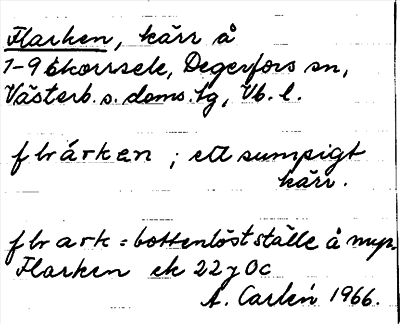 Flarken, kärr å
1-9 Ekorrsele, Degerfors sn,
Västerb. s. doms. lg, Vb. l.
flrárken ; ett sumpigt
kärr.
flrark = bottenlöst ställe å myr.
Flarken ek 22 y 0c
A. Carlén 1966.